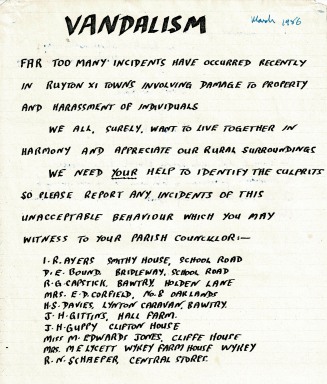 VANDALISM
March 1986
FAR TOO MANY INCIDENTS HAVE OCCURRED RECENTLY
IN RUYTON XI TOWNS INVOLVING DAMAGE TO PROPERTY
AND HARASSMENT OF INDIVIDUALS
WE ALL, SURELY, WANT TO LIVE TOGETHER IN
HARMONY AND APPRECIATE OUR RURAL SURROUNDINGS
WE NEED YOUR HELP TO IDENTIFY THE CULPRITS
SO PLEASE REPORT ANY INCIDENTS OF THIS
UNACCEPTABLE BEHAVIOUR WHICH YOU MAY
WITNESS TO YOUR PARISH COUNCILLOR:—
I.R. AYERS SMITHY HOUSE, SCHOOL ROAD
D.E. BOUND. BRIDLEWAY, SCHOOL ROAD
R.G. CAPSTICK, BAWTRY, HOLDEN LANE
MRS. E.D. CORFIELD, NO.8 OAKLANDS
H.S. DAVIES, LYNTON CARAVAN, BAWTRY.
J.H. GITTINS, HALL FARM.
J.H. GUPPY CLIFTON HOUSE
MISS M. EDWARDS JONES, CLIFFE HOUSE
MRS. M E LYCETT WYKEY FARM HOUSE WYKEY
R.N. SCHAEPER, CENTRAL STORES.